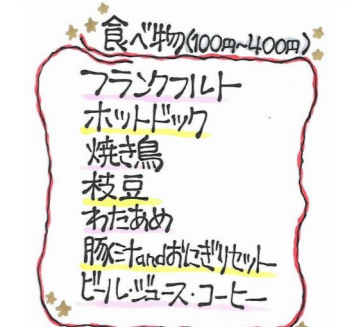 食べ物(100円~400円)
フランクフルト
ホットドック
焼き鳥
枝豆
わたあめ
豚汁andおにぎりセット
ビール・ジュース・コーヒー